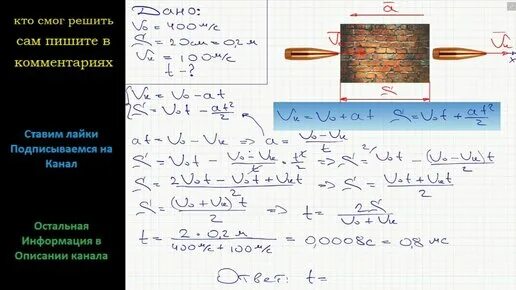 кто смог решить
сам пишите в
комментариях
Ставим лайки
Подписываемся на
Канал
Остальная
Информация в
Описании канала
Дано:
V₀ = 400 м/с
S = 20см = 0,2 м
Vк = 100 м/с
t - ?
a
V₀
Vк
x
S
Vк = V₀ + at S = V₀t + at²/2
Vк = V₀ - at
S = V₀t - at²/2
at = V₀ - Vк => a = (V₀ - Vк)/t
S = V₀t - (V₀ - Vк)/t · t²/2 => S = V₀t - (V₀ - Vк)t/2
S = (2V₀t - V₀t + Vкt)/2 => S = (V₀t + Vкt)/2
S = (V₀ + Vк)t/2 => t = 2S/(V₀ + Vк)
t = 2 · 0,2 м/(400 м/с + 100 м/с) = 0,0008с = 0,8 мс
Ответ: t =